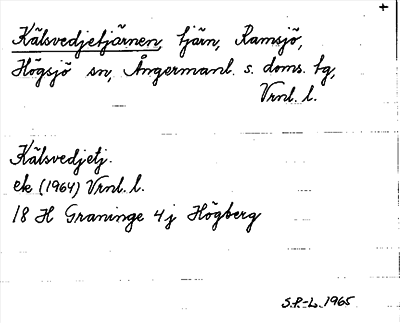 +
Kälsvedjetjärnen, tjärn, Ramsjö,
Högsjö sn, Ångermanl. s. doms. tg,
Vrnl. l.
Kälsvedjetj.
ek (1964) Vrnl. l.
18 H Graninge 4 j Högberg
S.P.-L. 1965